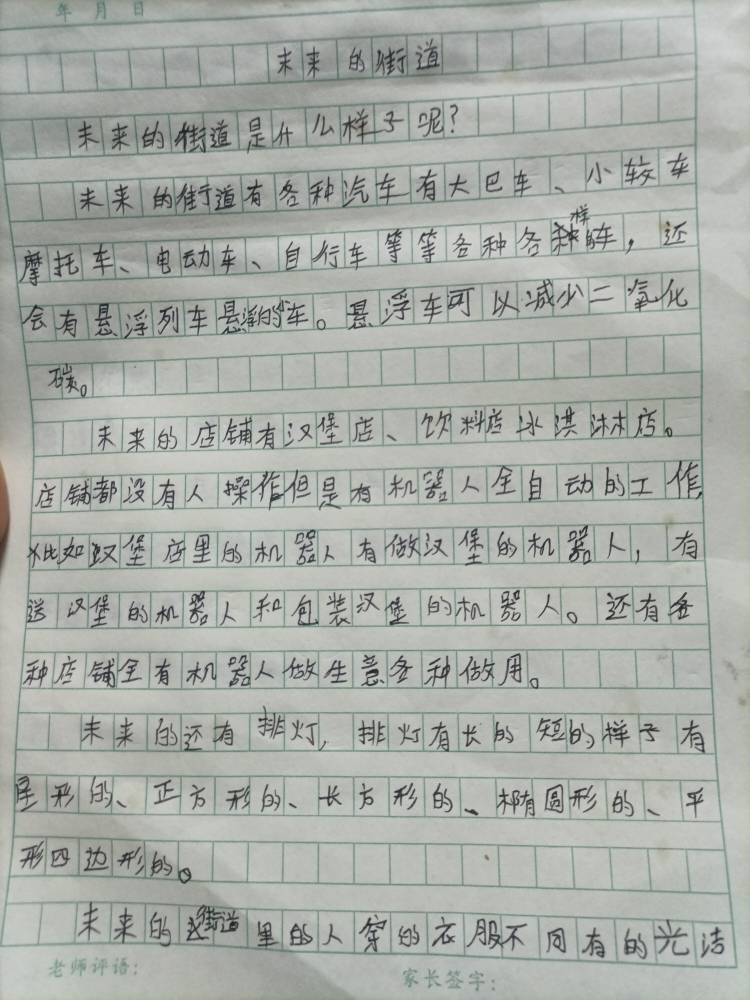 年 月 日
未来的街道
未来的街道是什么样子呢？
未来的街道有各种汽车有大巴车、小较车
摩托车、电动车、自行车等等各种各样的车，还
会有悬浮列车悬浮的车。悬浮车可以减少二氧化
碳。
未来的店铺有汉堡店、饮料店冰淇淋店。
店铺都没有人操作但是有机器人全自动的工作，
比如汉堡店里的机器人有做汉堡的机器人，有
送汉堡的机器人和包装汉堡的机器人。还有各
种店铺全有机器人做生意各种做用。
未来的还有排灯，排灯有长的短的样子有
星形的、正方形的、长方形的、椭圆形的、平
形四边形的。
未来的街道里的人穿的衣服不同有的光洁
老师评语：
家长签字：